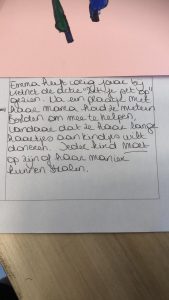 Emma heeft vorig jaar bij
de actie "zet je pet op"
gezien. Na een praatje met
haar mama had ze meteen
besloten om mee te helpen,
vandaar dat ze haar lange
haartjes aan kindjes wilt
doneren. Ieder kind moet
op zijn of haar manier
kunnen stralen.